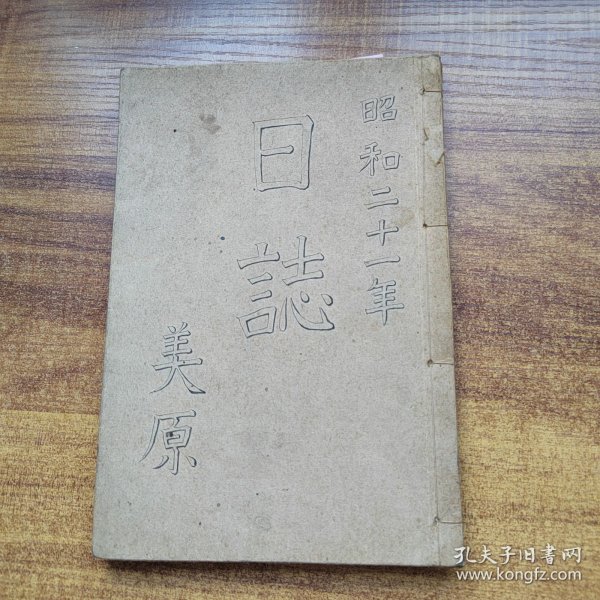 昭和二十一年
日誌
美原
孔夫子旧書网
www.kongfz.com